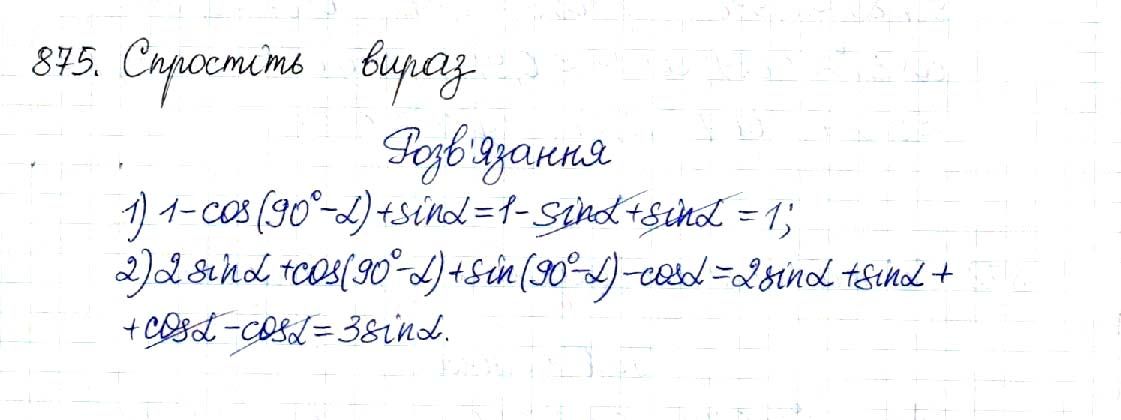 875. Спростіть вираз
Розв'язання
1) 1-cos(90°-α)+sinα=1-sinα+sinα=1;
2) 2sinα+cos(90°-α)+sin(90°-α)-cosα=2sinα+sinα+
+cosα-cosα=3sinα.